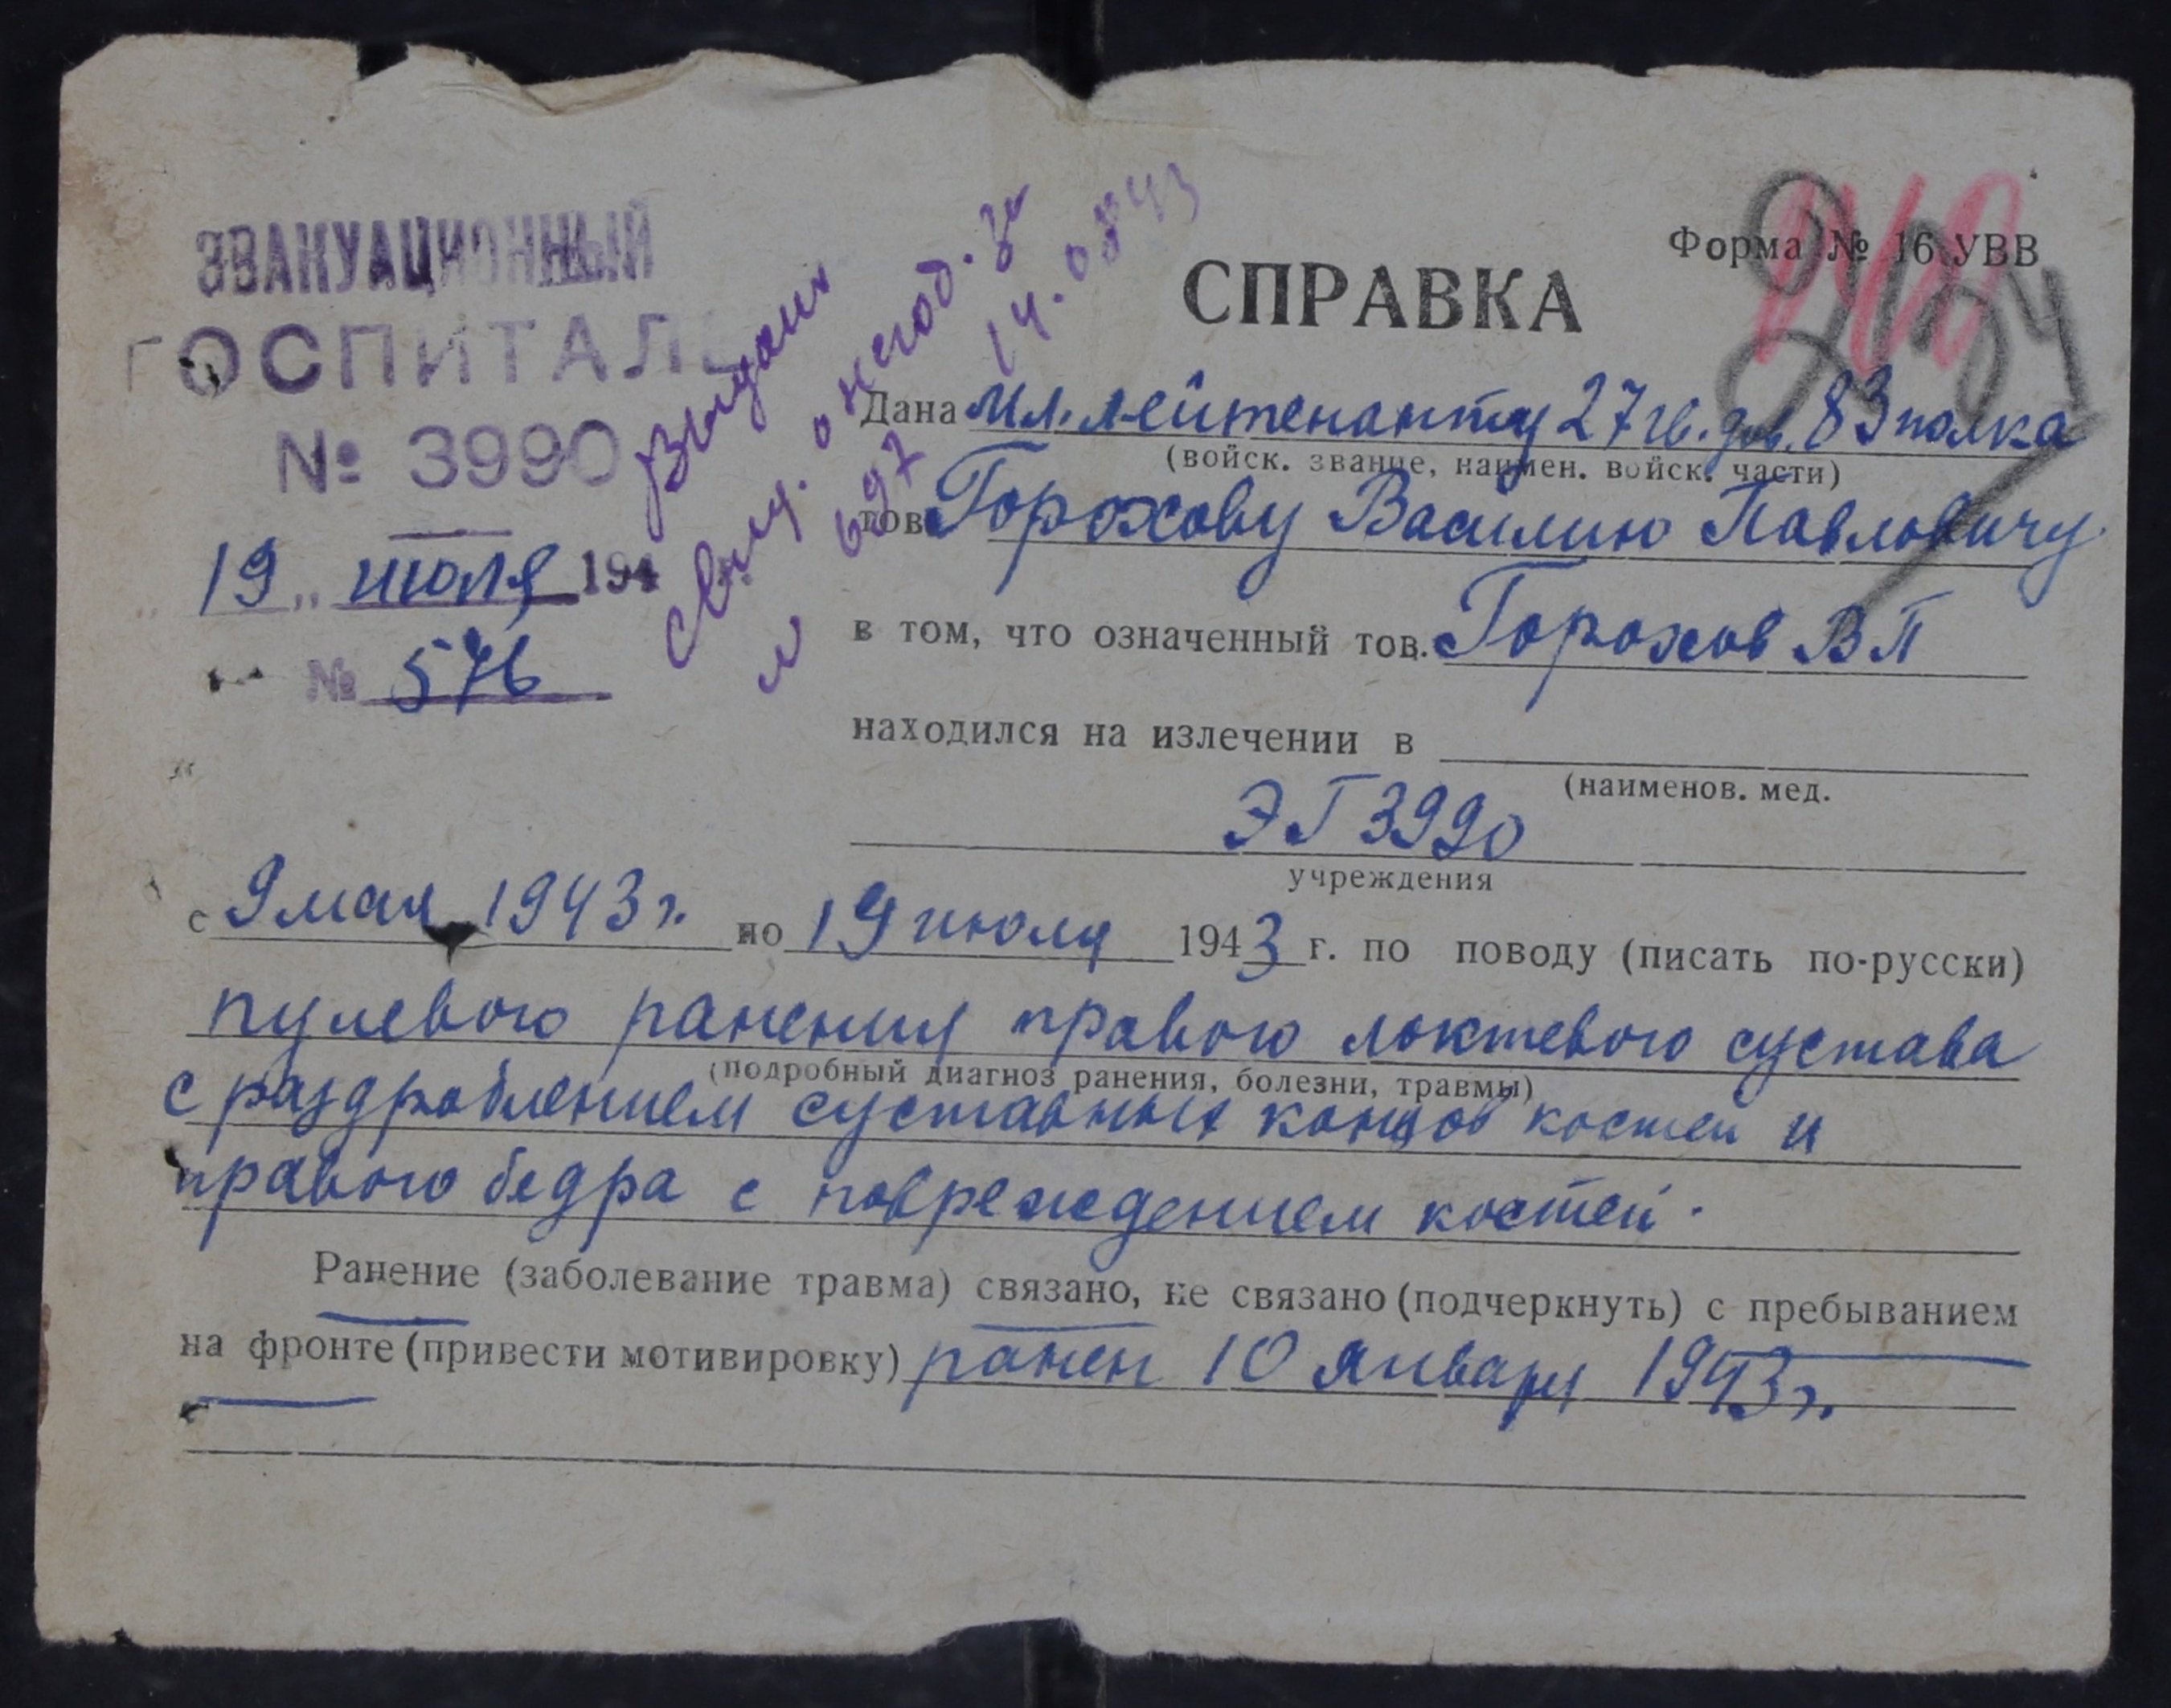 ЭВАКУАЦИОННЫЙ
ГОСПИТАЛЬ
№ 3990
19 июля 194
№ 576
Выдан
свид. о негод. за
№ 697 14.0843
Форма № 16 УВВ
СПРАВКА
Дана мл. лейтенанту 27 гв. див. 83 полка
(войск. звание, наимен. войск. части)
тов. Горохову Василию Павловичу
в том, что означенный тов. Горохов ВП
находился на излечении в
(наименов. мед.
ЭГ 3990
учреждения
с 9 мая 1943 г. по 19 июля 1943 г. по поводу (писать по-русски)
пулевого ранения правого локтевого сустава
(подробный диагноз ранения, болезни, травмы)
с раздроблением суставных концов костей и
правого бедра с повреждением костей.
Ранение (заболевание травма) связано, не связано (подчеркнуть) с пребыванием
на фронте (привести мотивировку) ранен 10 января 1943 г.